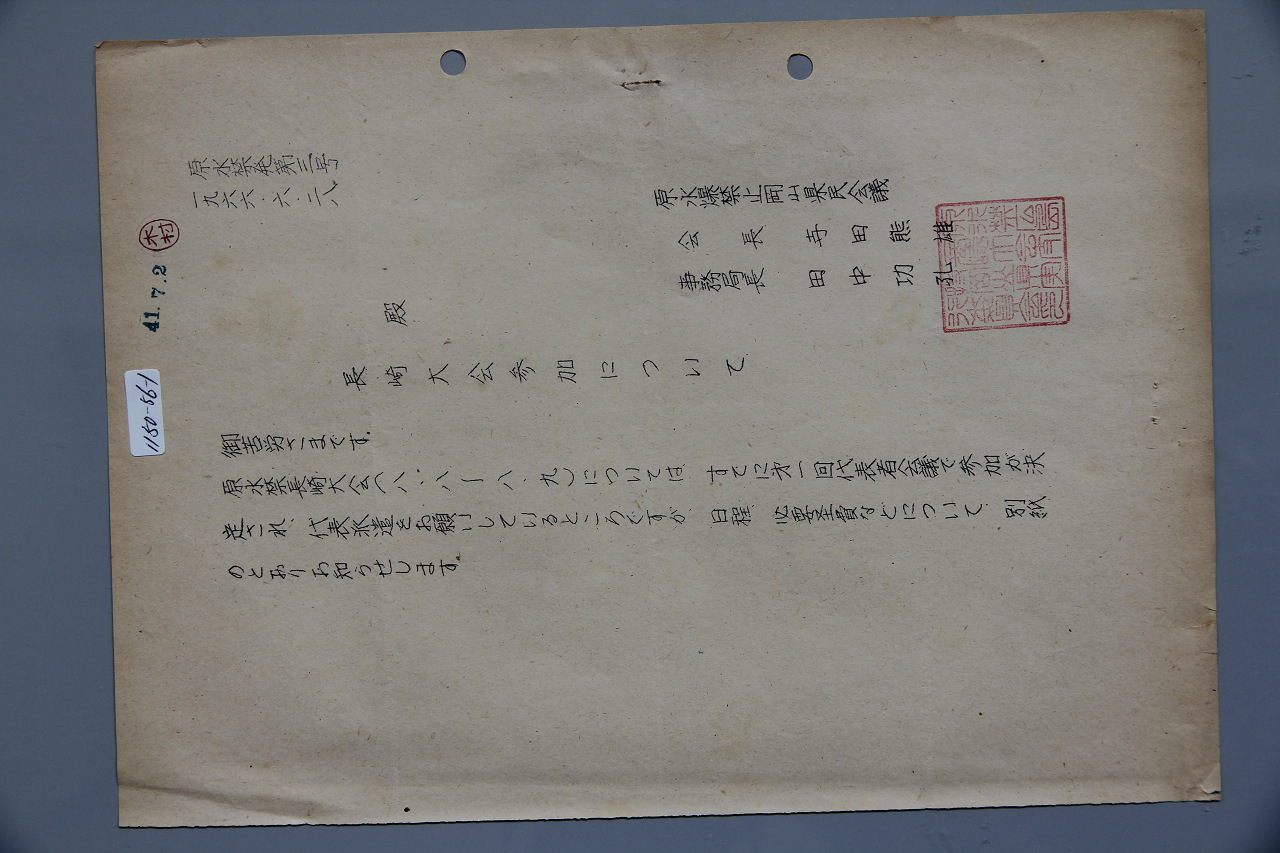 原水禁発第三号
一九六六・六・二八
木村
41.7.2
1150-56-1
原水爆禁止岡山県民会議
会長 寺田熊雄
事務局長 田中功
殿
長崎大会参加について
御苦労さまです。
原水禁長崎大会(八・八ー八・九)については、すでに第一回代表者会議で参加が決
定され、代表派遣をお願いしているところですが、日程、必要全費などについて、別紙
のとおりお知らせします。